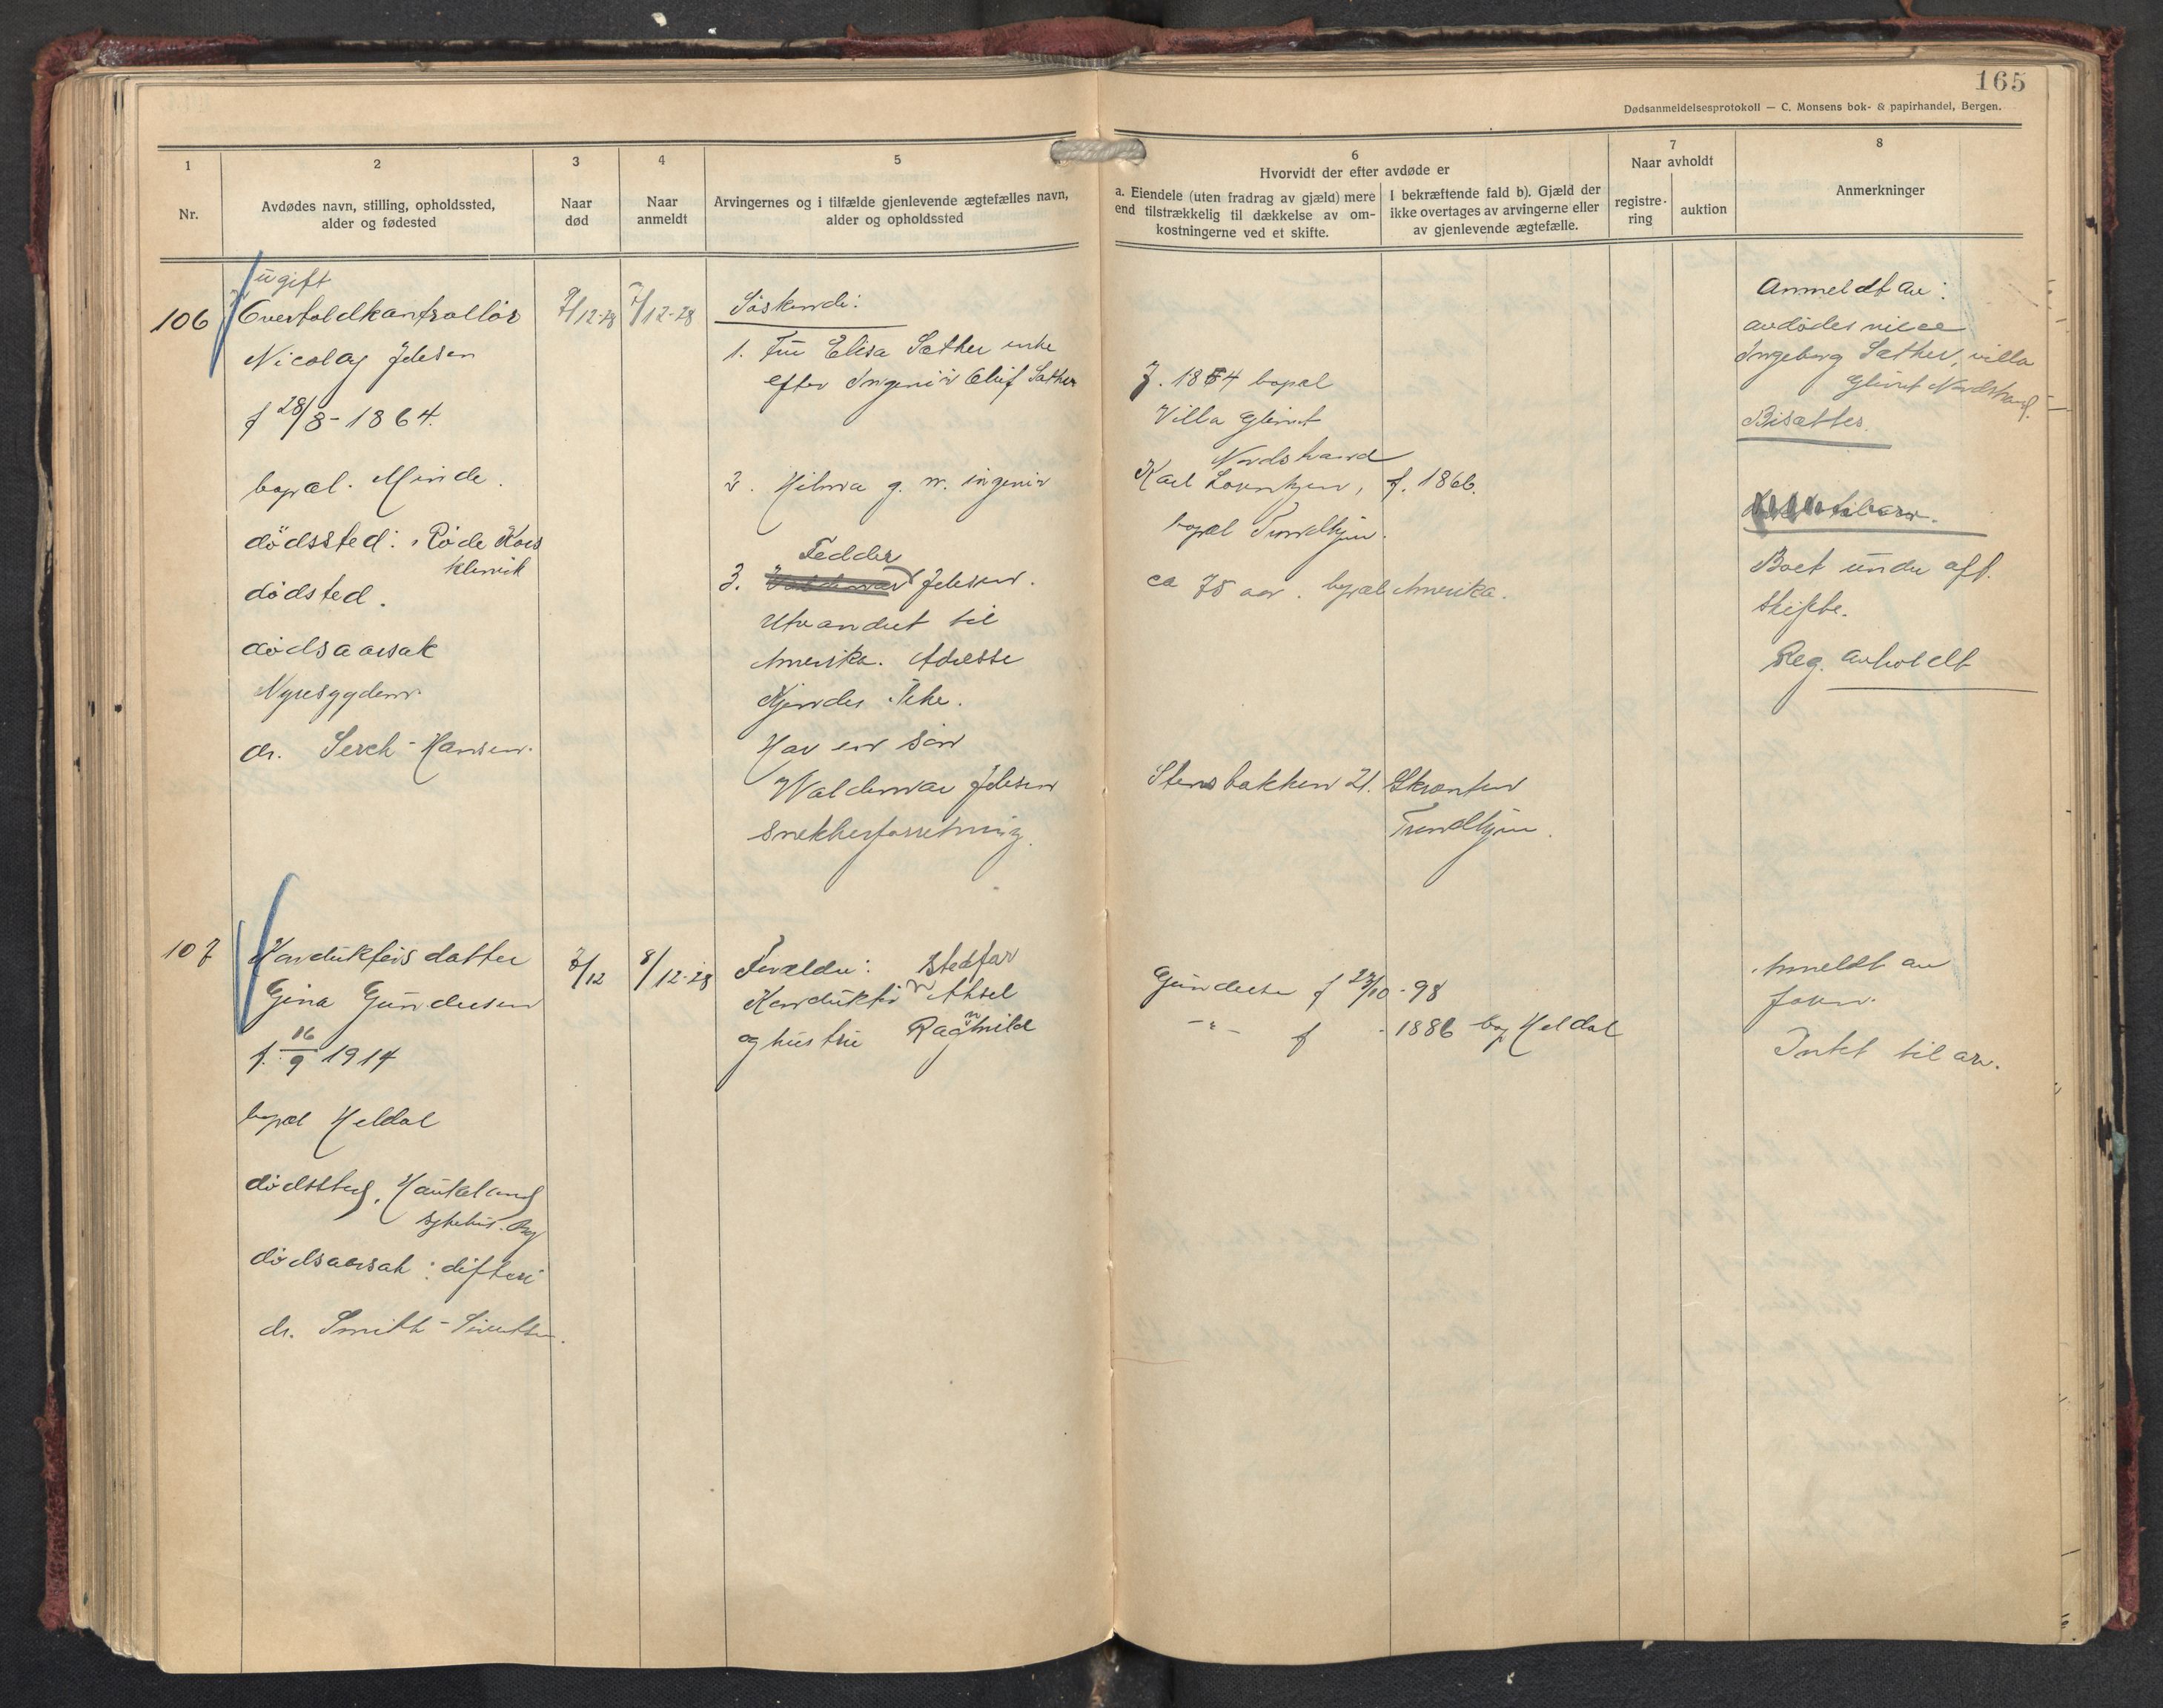 165
Dødsanmeldelsesprotokoll — C. Monsens bok- & papirhandel, Bergen.
1
Nr.
2
Avdødes navn, stilling, opholdssted,
alder og fødested
3
Naar
død
4
Naar
anmeldt
5
Arvingernes og i tilfælde gjenlevende ægtefælles navn,
alder og opholdssted
6
Hvorvidt der efter avdøde er
a. Eiendele (uten fradrag av gjæld) mere
end tilstrækkelig til dækkelse av om-
kostningerne ved et skifte.
I bekræftende fald b). Gjæld der
ikke overtages av arvingerne eller
av gjenlevende ægtefælle.
7
Naar avholdt
registre-
ring
auktion
8
Anmerkninger
106
ugift
Overtoldkontrollör
Nicolay Jelesen
f 28/8-1864.
bopæl. Minde.
dödssted: Röde Kors
klinik
dödsted.
dödsaarsak
Nyresygdom.
dr. Serck-Hansen.
7/12-28
7/12-28
Söskende:
1. Fru Elisa Sæther enke
efter Ingeniör Oluf Sæther
f. 1854 bopæl
Villa Glimt
Nordstrand
2. Hilma g. m. ingeniör
Karl Lorentzen, f. 1866.
bopæl Trondhjem.
Fedder
3. Jelesen.
ca 75 aar. bopæl Amerika.
Utvandret til
Amerika. Adresse
Kjendes ikke.
Har en sön
Waldemar Jelesen
snekkerforretning.
Stensbakken 21. Skrænten
Trondhjem.
Anmeldt av:
avdödes niece
Ingeborg Sæther, villa
Glimt Nordstrand.
Bisættes.
til arv.
Boet under off.
skifte.
Reg. avholdt
107
Konduktörs datter
Gina Gundersen
f. 16/9 1914
bopæl Heldal
dödssted, Haukeland
sykehus. Brg
dödsaarsak: difteri
dr. Smith-Sivertsen.
7/12
8/12-28
Forældre: Stedfar
Konduktör Aksel
Gundersen f 27/10-98
og hustru Ragnhild
-"- f -1886 bop Heldal
Anmeldt av
faren.
Intet til arv.